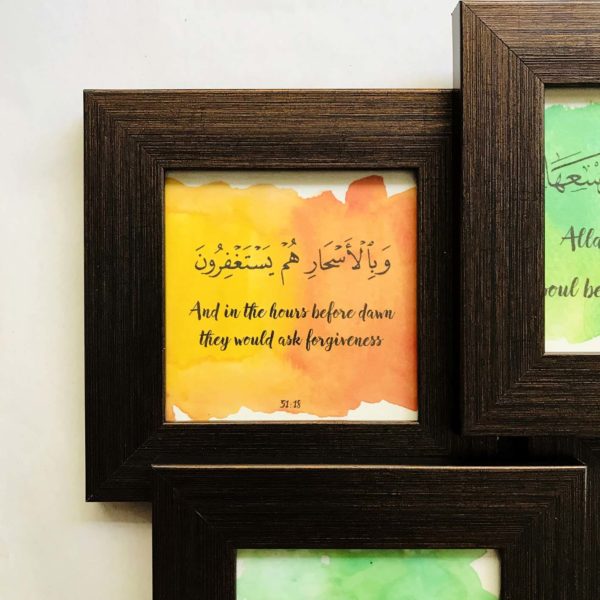 وَبِٱلْأَسْحَارِ هُمْ يَسْتَغْفِرُونَ
And in the hours before dawn
they would ask forgiveness
51:18